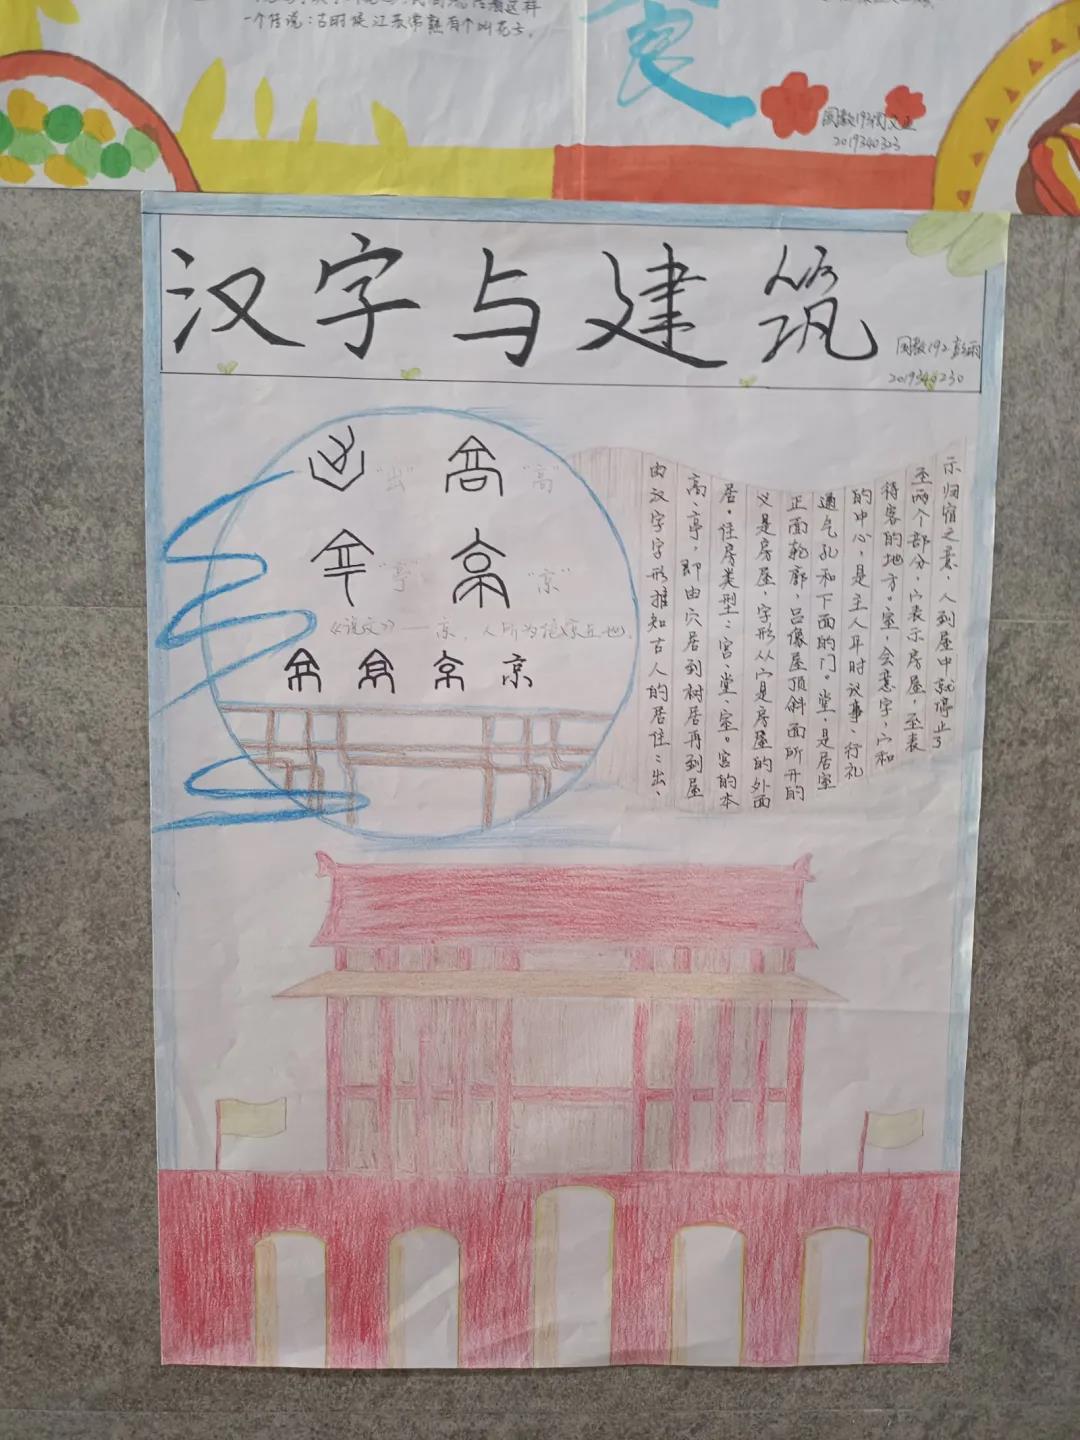 一个传说：古时候江苏常熟有个叫花子，
食
2019340323
汉字与建筑
国教192 彭雨
2019340230
"出" "高"
"亭" "京"
《说文》——京，人所为绝高丘也。
京
由汉字字形推知古人的居住：出、
高、亭，即由穴居到树居再到屋
居。住房类型：宫、堂、室。宫的本
义是房屋，字形从宀是房屋的外面
正面轮廓，吕像屋顶斜面所开的
通气孔和下面的门。堂，是居室
的中心，是主人平时议事、行礼
待客的地方。室，会意字，宀和
至两个部分，宀表示房屋，至表
示归宿之意，人到屋中就停止了